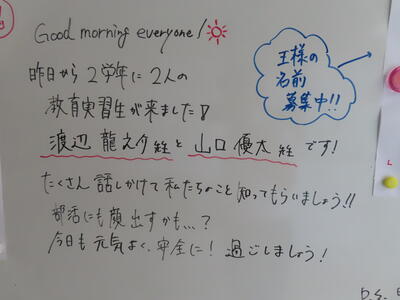 Good morning everyone!
昨日から2学年に2人の
教育実習生が来ました!
渡辺 龍之介 経と 山口 優太 経 です!
たくさん 話しかけて 私たちのこと 知ってもらいましょう!!
部活にも顔出すかも...?
今日も 元気よく、安全に! 過ごしましょう!
王様の
名前
募集中!!
P.S.